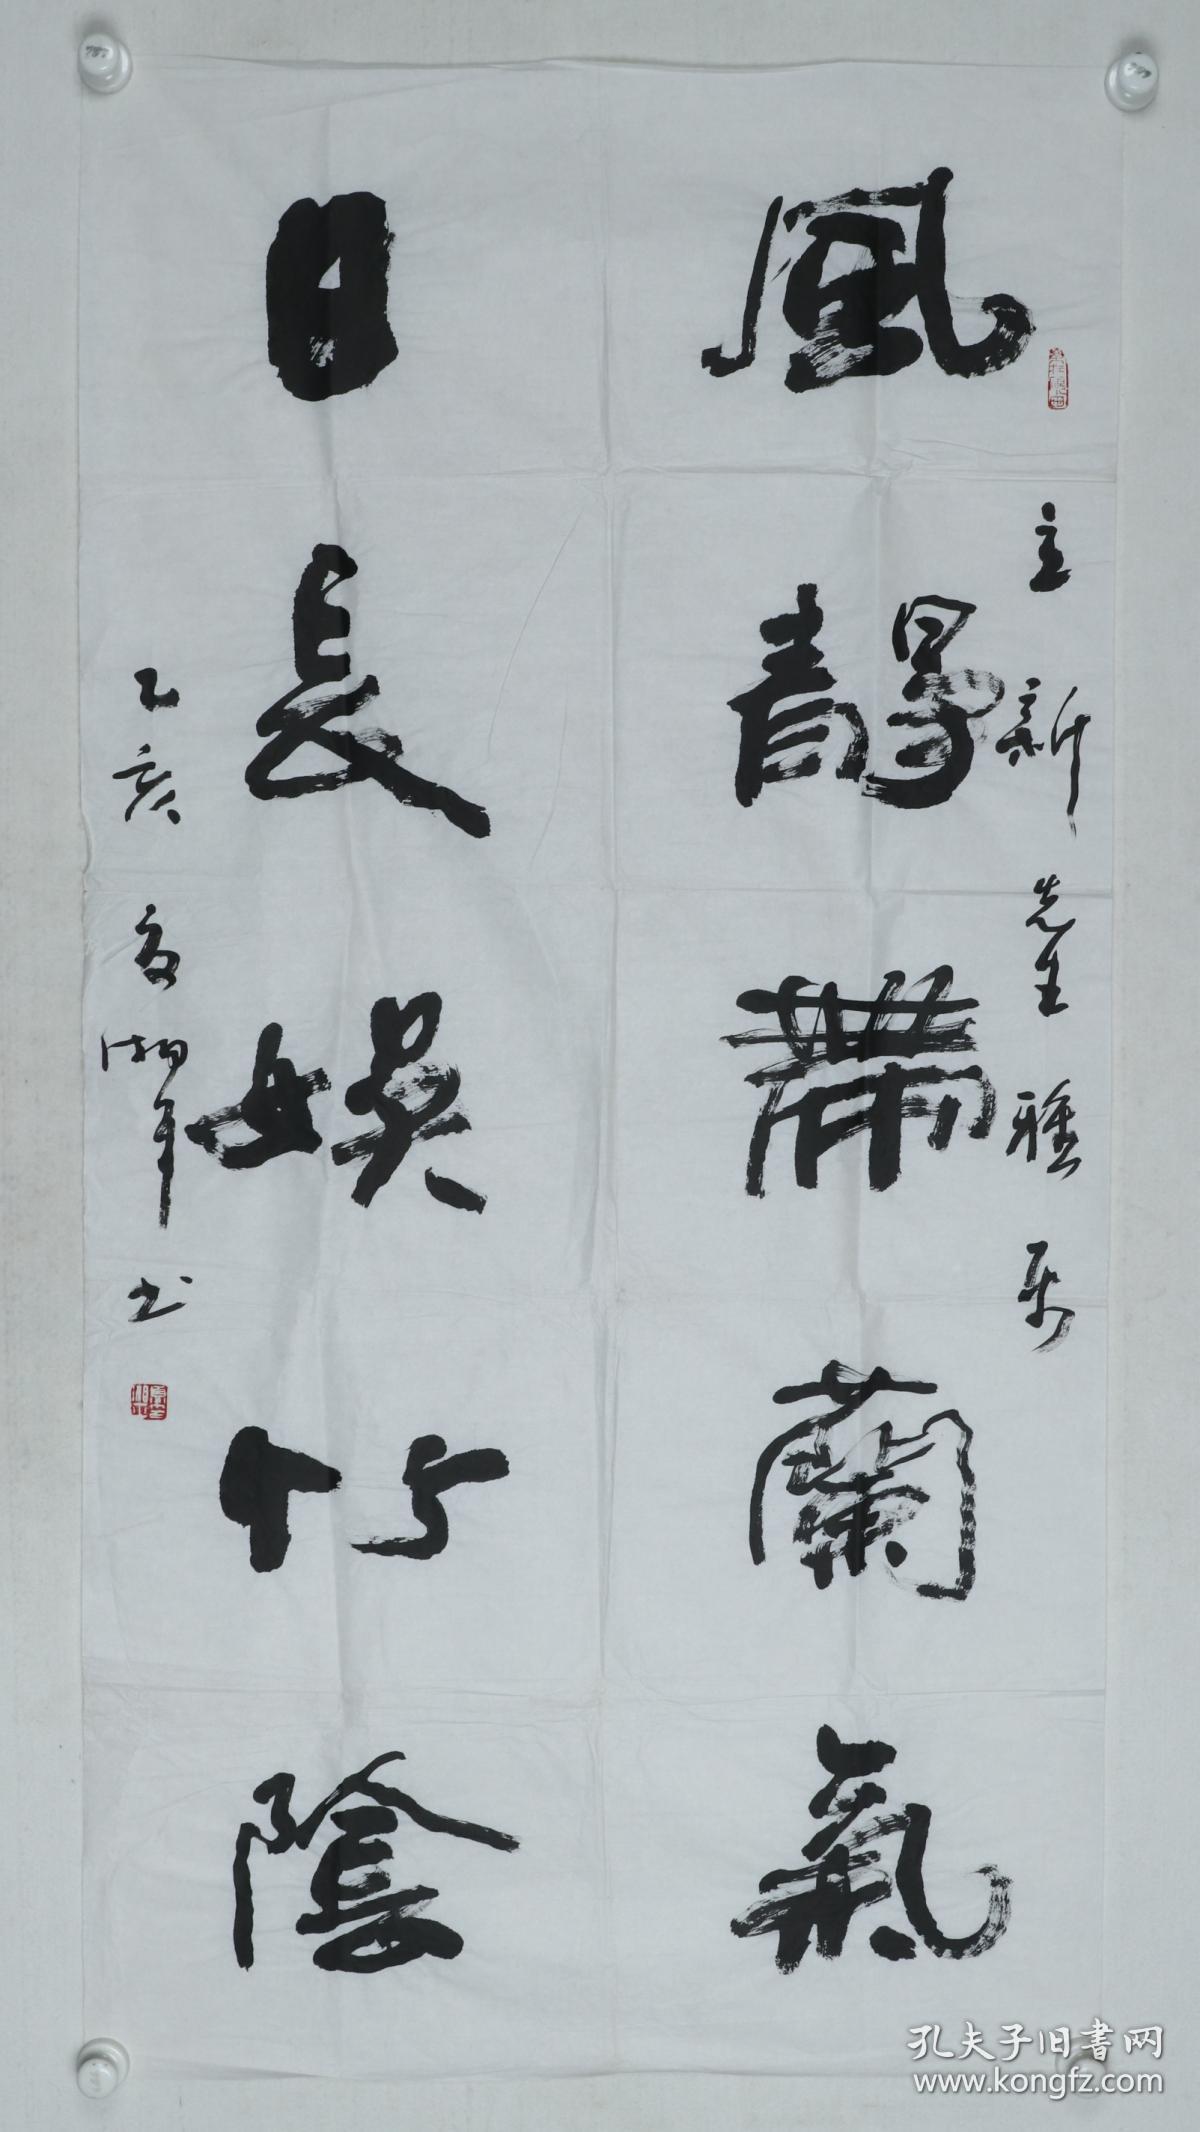 風静帶蘭氣
主新先生雅属
日長娛竹陰
乙亥夏湘平书
孔夫子旧書网
www.kongfz.com